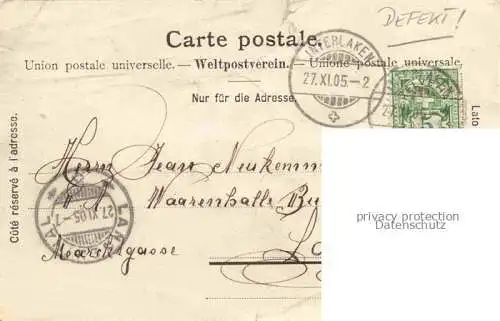 DEFEKT!
Carte postale.
Union postale universelle. — Weltpostverein. — Unione postale universale.
Nur für die Adresse.
Côté réservé à l'adresse.
Lato
INTERLAKEN
27.XI.05.–2
LANG
27.XI.05.–
Herrn Jean Neukomm
Waarenhalle
Marktgasse
privacy protection
Datenschutz